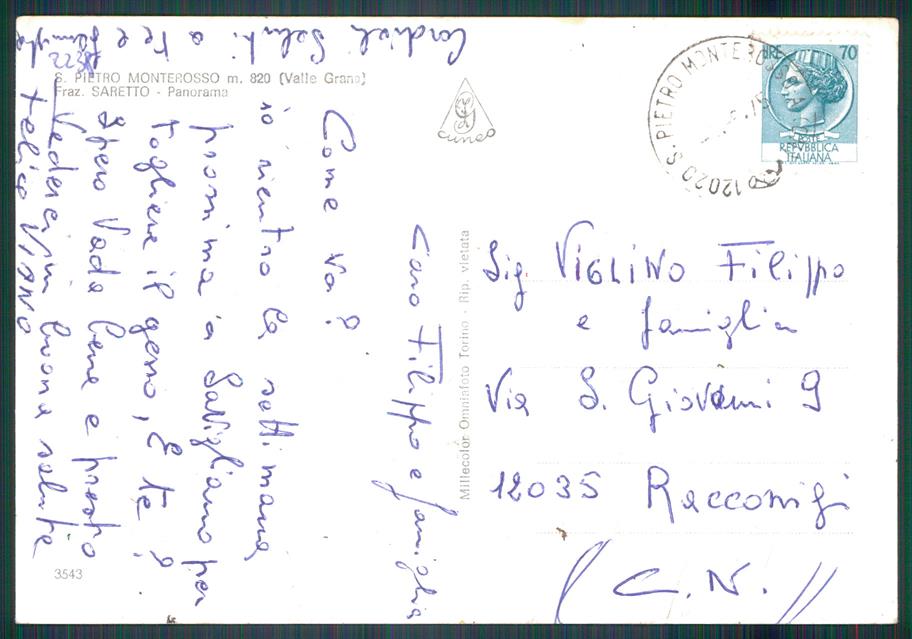 S. PIETRO MONTEROSSO m. 820 (Valle Grana)
Fraz. SARETTO - Panorama
Caro Filippo e famiglia
Come va?
io rientro la settimana
prossima a Savigliano per
togliere il gesso, E te?
Spero Vada bene e presto
Vederci in buona salute
Felice VIANO
Cordiali Saluti a Te e famiglia
cuneo
Millecolor Omniafoto Torino - Rip. vietata
12020 S. PIETRO MONTEROSSO
LIRE 70
POSTE
REPVBBLICA
ITALIANA
Sig VIGLINO Filippo
e famiglia
Via S. Giovanni 9
12035 Racconigi
(C.N.)
3543